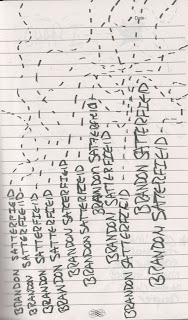 BRANDON SATTERFIELD
BRANDON SATTERFIELD
BRANDON SATTERFIELD
BRANDON SATTERFIELD
BRANDON SATTERFIELD
BRANDON SATTERFIELD
BRANDON SATTERFIELD
BRANDON SATTERFIELD
BRANDON SATTERFIELD
BRANDON SATTERFIELD
BRANDON SATTERFIELD